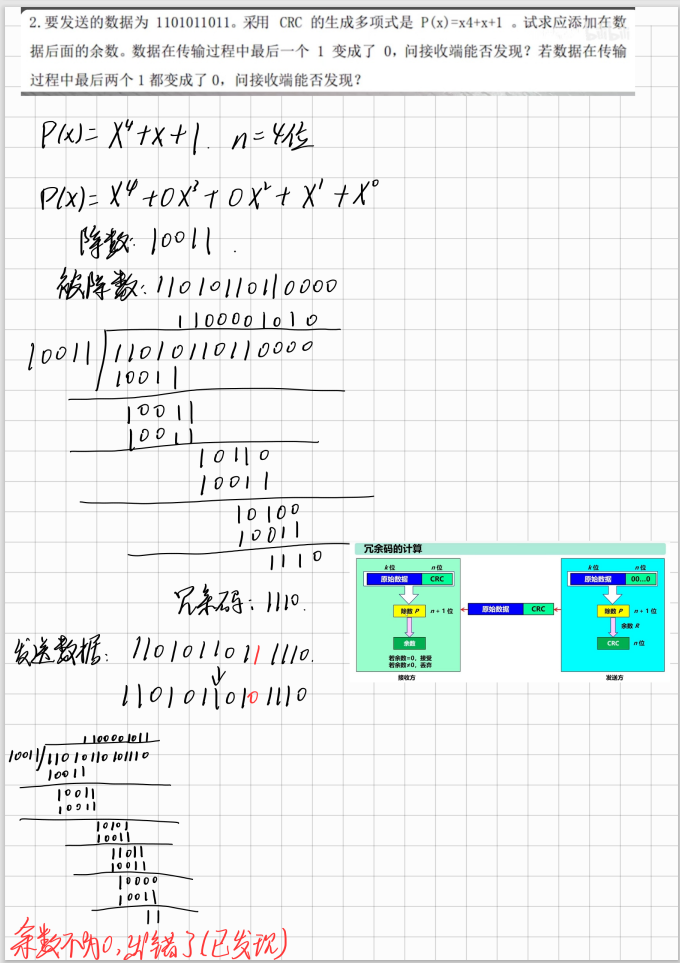 2.要发送的数据为 1101011011。采用 CRC 的生成多项式是 P(x)=x4+x+1 。试求应添加在数
据后面的余数。数据在传输过程中最后一个 1 变成了 0，问接收端能否发现？若数据在传输
过程中最后两个 1 都变成了 0，问接收端能否发现？
P(x)= X⁴+x+1. n=4位
P(x)= X⁴+0X³+0X²+X¹+X⁰
除数: 10011.
被除数: 11010110110000
1100001010
10011 11010110110000
10011
10011
10011
10110
10011
10100
10011
1110
冗余码: 1110.
冗余码的计算
k位 n位
原始数据 CRC
除数 P n+1位
余数
若余数=0，接受
若余数≠0，丢弃
接收方
原始数据 CRC
k位 n位
原始数据 00...0
除数 P n+1位
余数 R
CRC n位
发送方
发送数据: 1101011011 1110.
↓
1101011010 1110
1100001011
10011 11010110101110
10011
10011
10011
10101
10011
11011
10011
10000
10011
11
余数不为0,出错了(已发现)